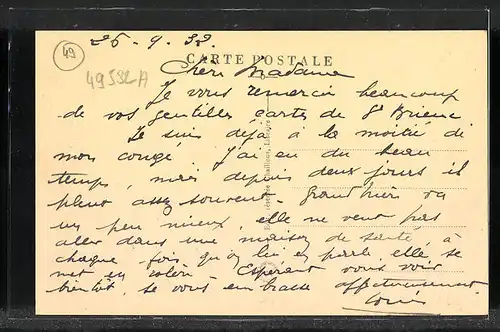 25-9-32
49
CARTE POSTALE
49532A
Chère Madame
Je vous remercie beaucoup
de vos gentilles cartes de St Brieuc
Je suis déjà à la moitié de
mon congé. J'ai eu du beau
temps, mais depuis deux jours il
pleut assez souvent. Grand'mère va
un peu mieux, elle ne veut pas
aller dans une maison de santé, à
chaque fois qu'on lui en parle, elle se
met en colère. Espérant vous voir
bientôt, je vous embrasse affectueusement
Louis